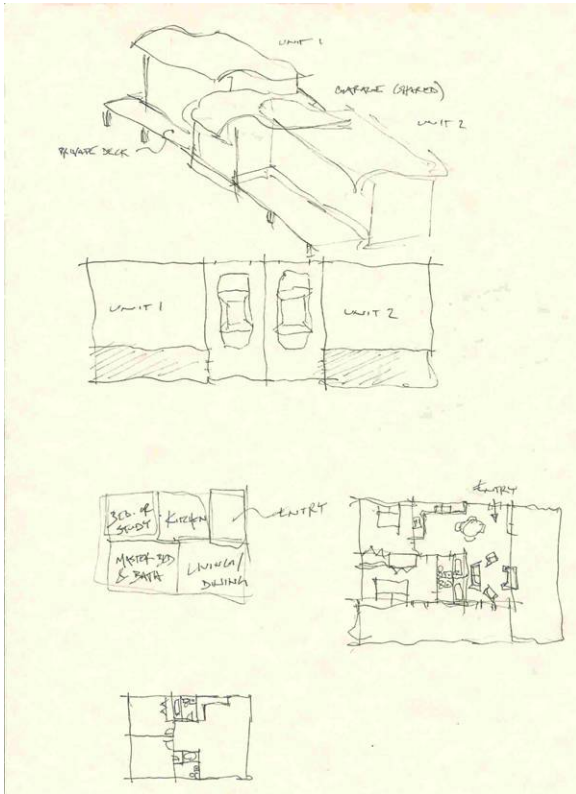 UNIT 1
GARAGE (SHARED)
UNIT 2
PRIVATE DECK
UNIT 1
UNIT 2
BED. OR
STUDY
KITCHEN
ENTRY
MASTER BED
& BATH
LIVING/
DINING
ENTRY